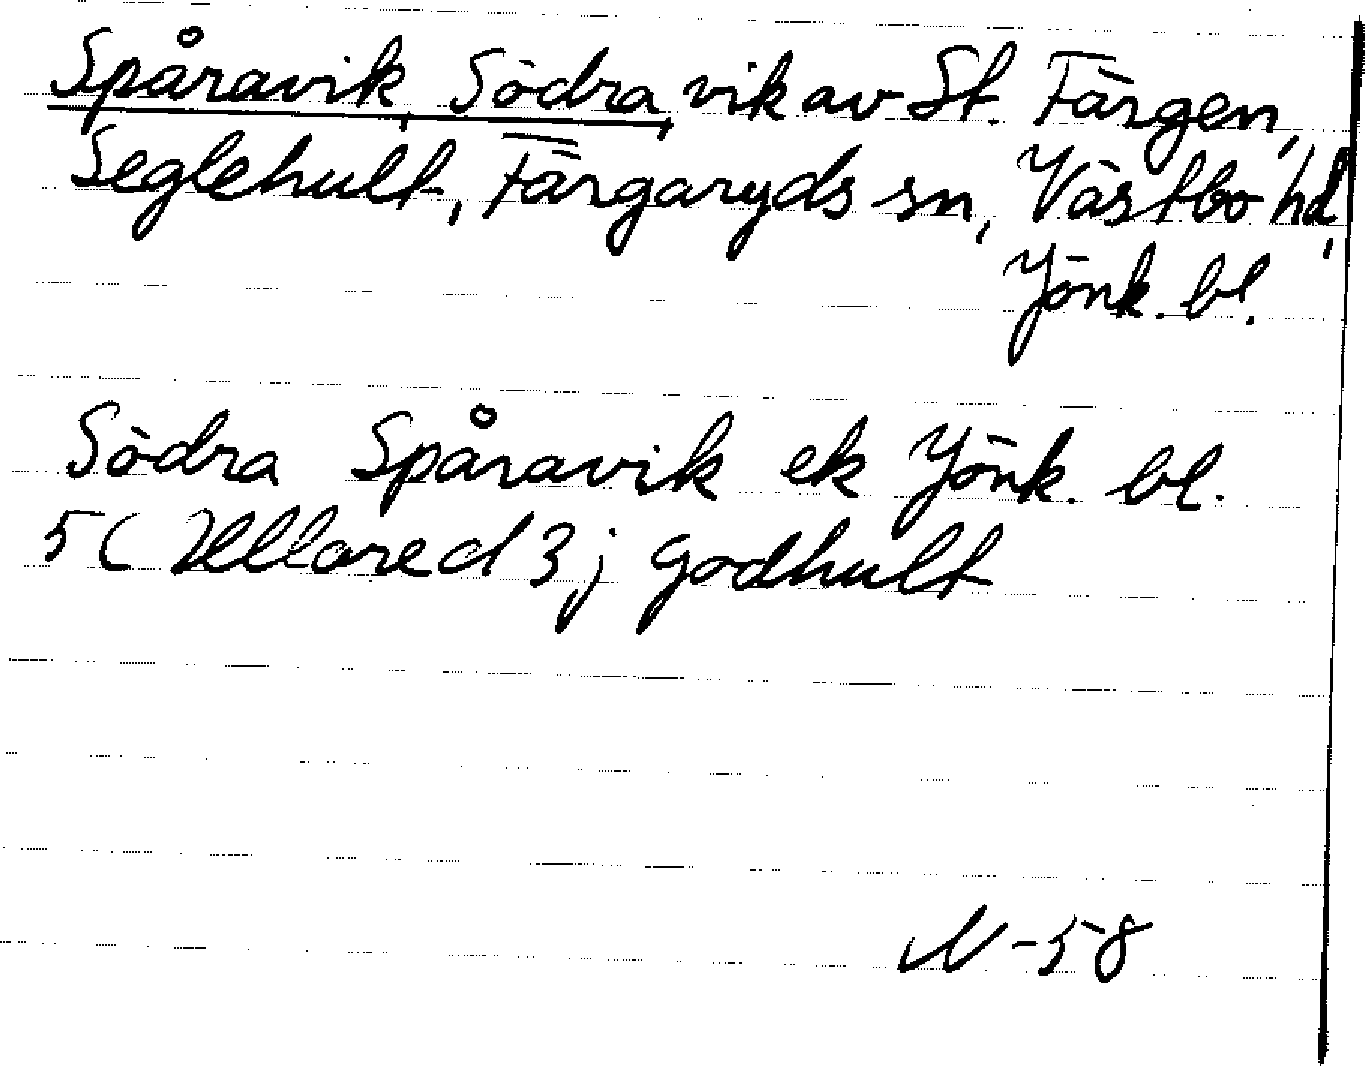 Spåravik, Södra, vik av St. Färgen,
Seglehult, Färgaryds sn, Västbo hd,
Jönk. bl.
Södra Spåravik ek Jönk. bl.
5 (Ullared 3; godhult
N-58